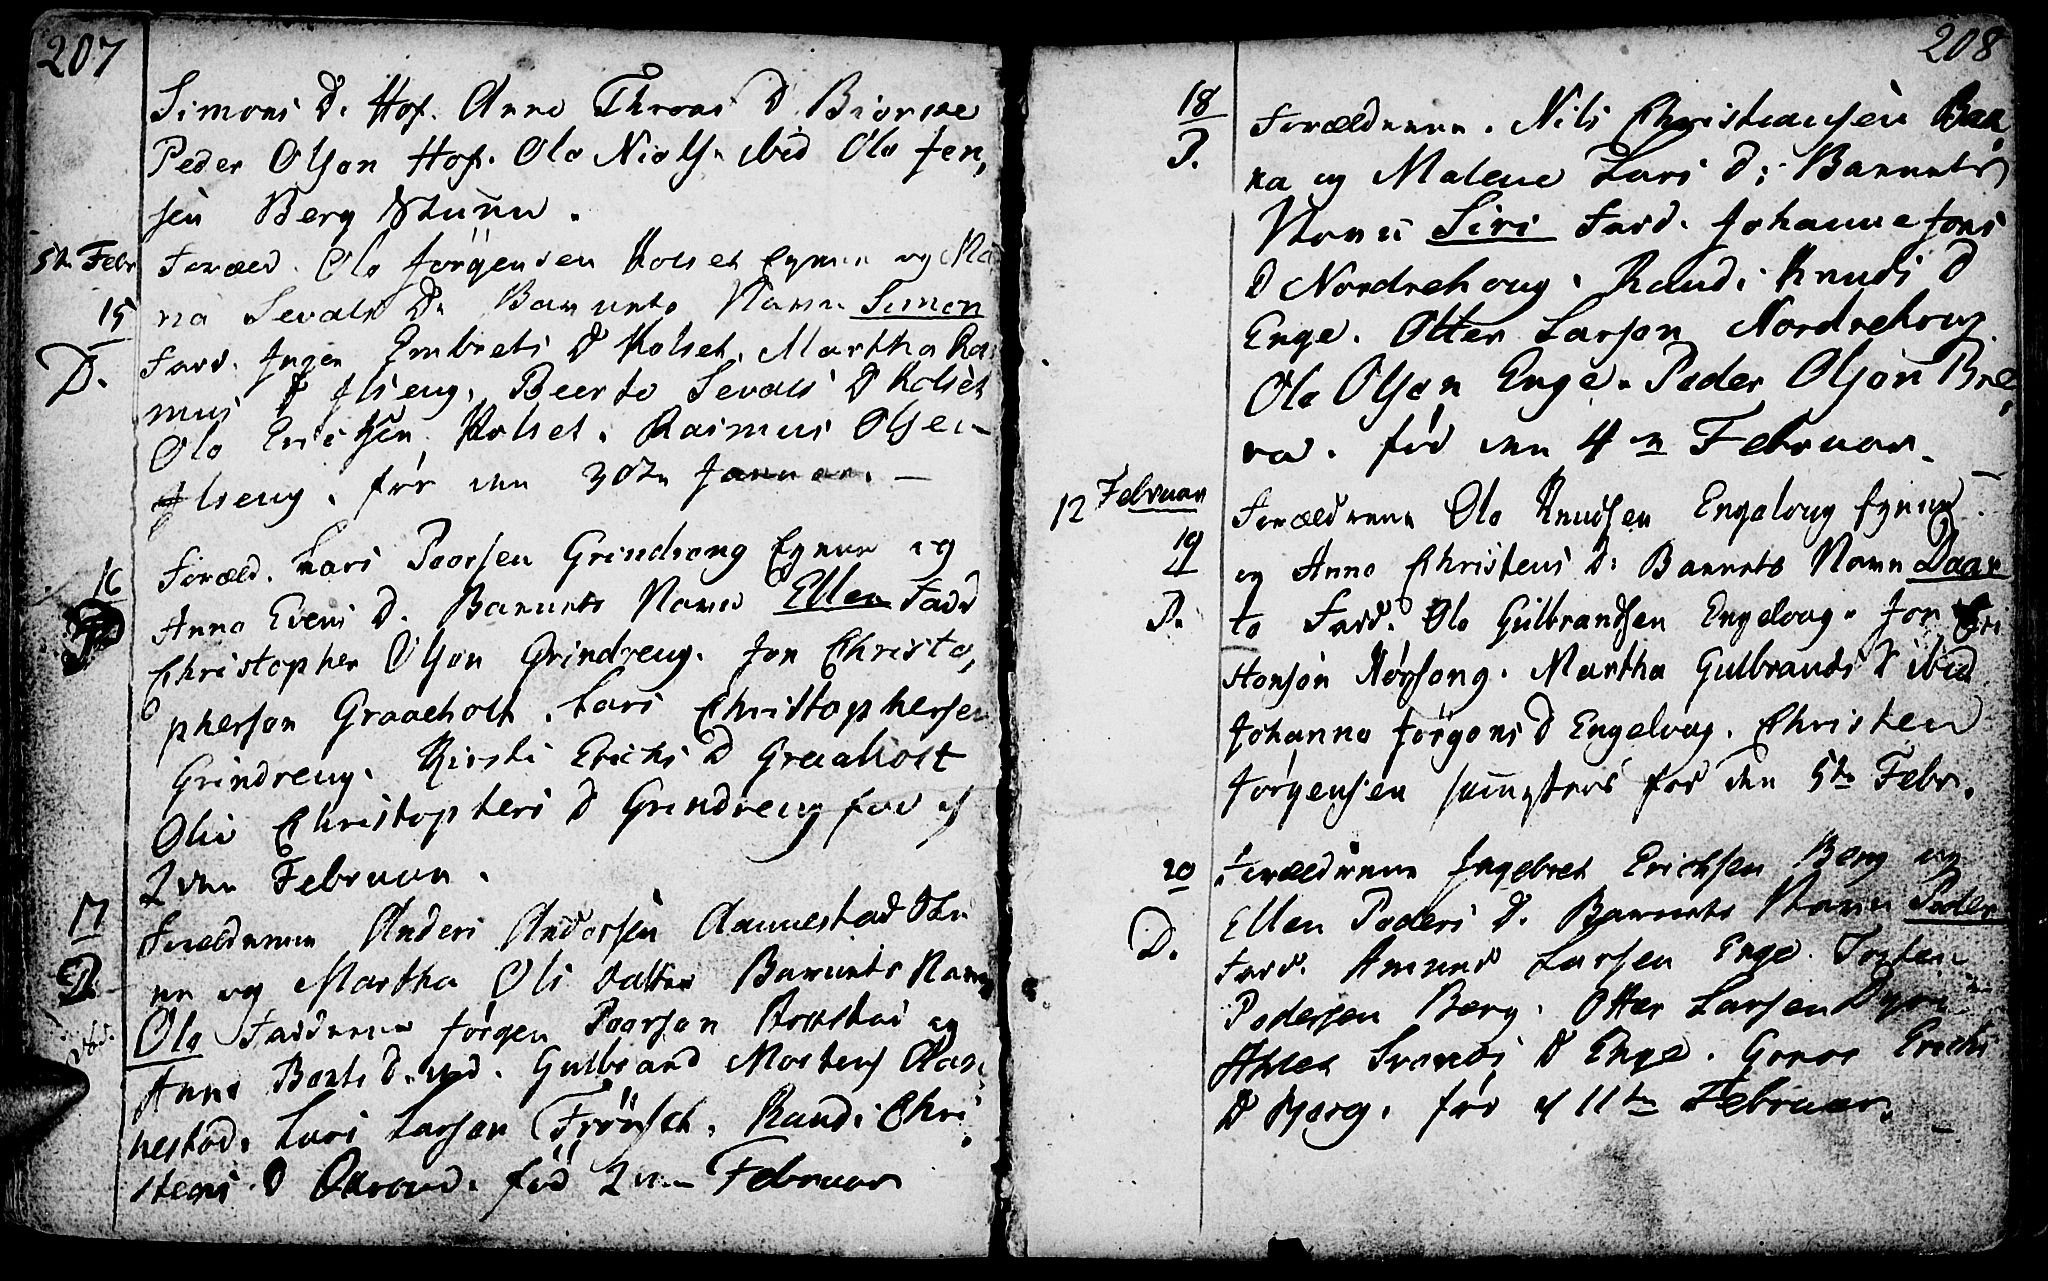 207
Simons D. Hof. Anne Throns D Biørcke
Peder Olsøn Hof. Ole Niels. ibid Ole Jen,
sen Berg Stuen.
5te Febr Foræld. Ole Jørgensen Kolset Eyner og Ma
15 ria Sevals D. Barnets Navn Simon
D. Fadd. Inger Embrets D Kolset. Martha Ras
mus D Ilseng. Beerte Sevals D Kolset
Ole Erichsen Kolset. Rasmus Olsen
Ilseng. før den 30te Januar. —
16 Foræld. Lars Poersen Grindreng Eyner og
Anne Evens D. Barnets Navn Ellen Fadd
Christopher Olsøn Grindreng. Jon Christo,
phersøn Graaeholt. Lars Christophersen
Grindreng. Kirsti Erichs D Graaholt
Olie Christophers D Grindreng før d
2den Februar.
17 Forældrene Anders Andersen Aannestad
D. og Martha Ols datter Barnets Navn
Ole Fadderne Jørgen Poersøn og
Anne D. ibid. Gulbrand Mortens Aan,
nestad. Lars Larsøn Frøyset. Randi Chri,
stens D Ottroud. før 2den Februar
208
18 Forældrene. Nils Christiansen Bræ,
D. ra og Malene Lars D: Barnets
Navn Siri Fadd. Johanne Jons
D Nordrehoug. Randi Knuds D
Enge. Otter Larsøn Nordrehoug.
Ole Olsøn Enge. Peder Olsøn Bræ,
ra. før den 4de Februar. —
12 Februar Forældrene Ole Knudsen Engeloug Eyner
19 og Anne Christens D: Barnets Navn Daar
D. te Fadd. Ole Gulbrandsen Engeloug. Jon Chri
stensøn Kørsøng. Martha Gulbrands D ibid
Johanne Jørgens D Engeloug. Christen
Jørgensen sammesteds før den 5te Febr.
20 Forældrene Ingebret Erichsen Berg og
D. Ellen Peders D. Barnets Navn Peder
Fadd. Amund Larsen Enge. Torsten
Pedersen Berg. Otter Larsen
Svends D Enge. Erichs
D Bierg. før d 11te Februar. —